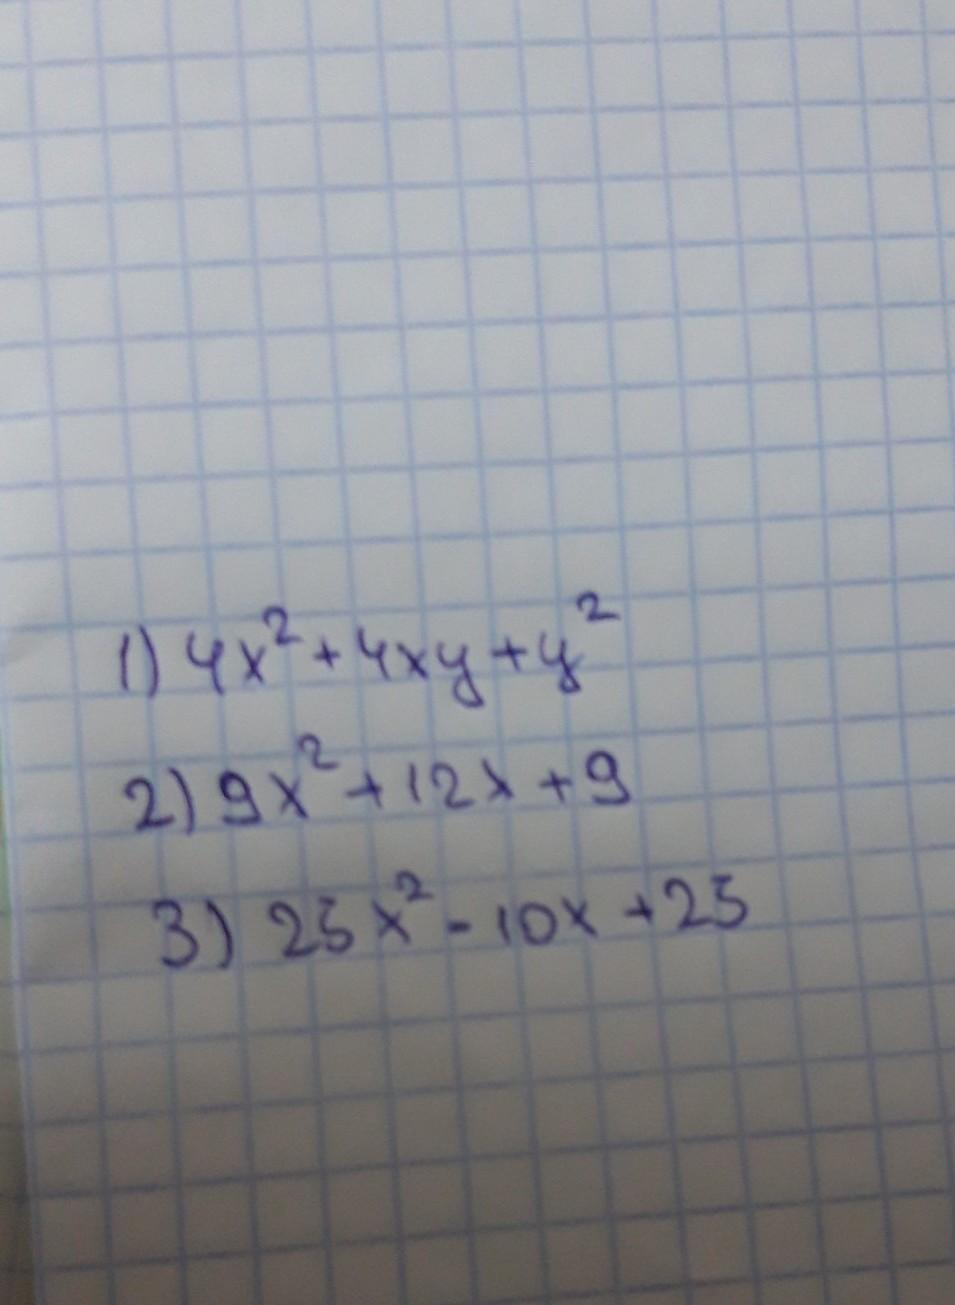 1) 4x²+4xy+y²
2) 9x²+12x+9
3) 25x²-10x+25